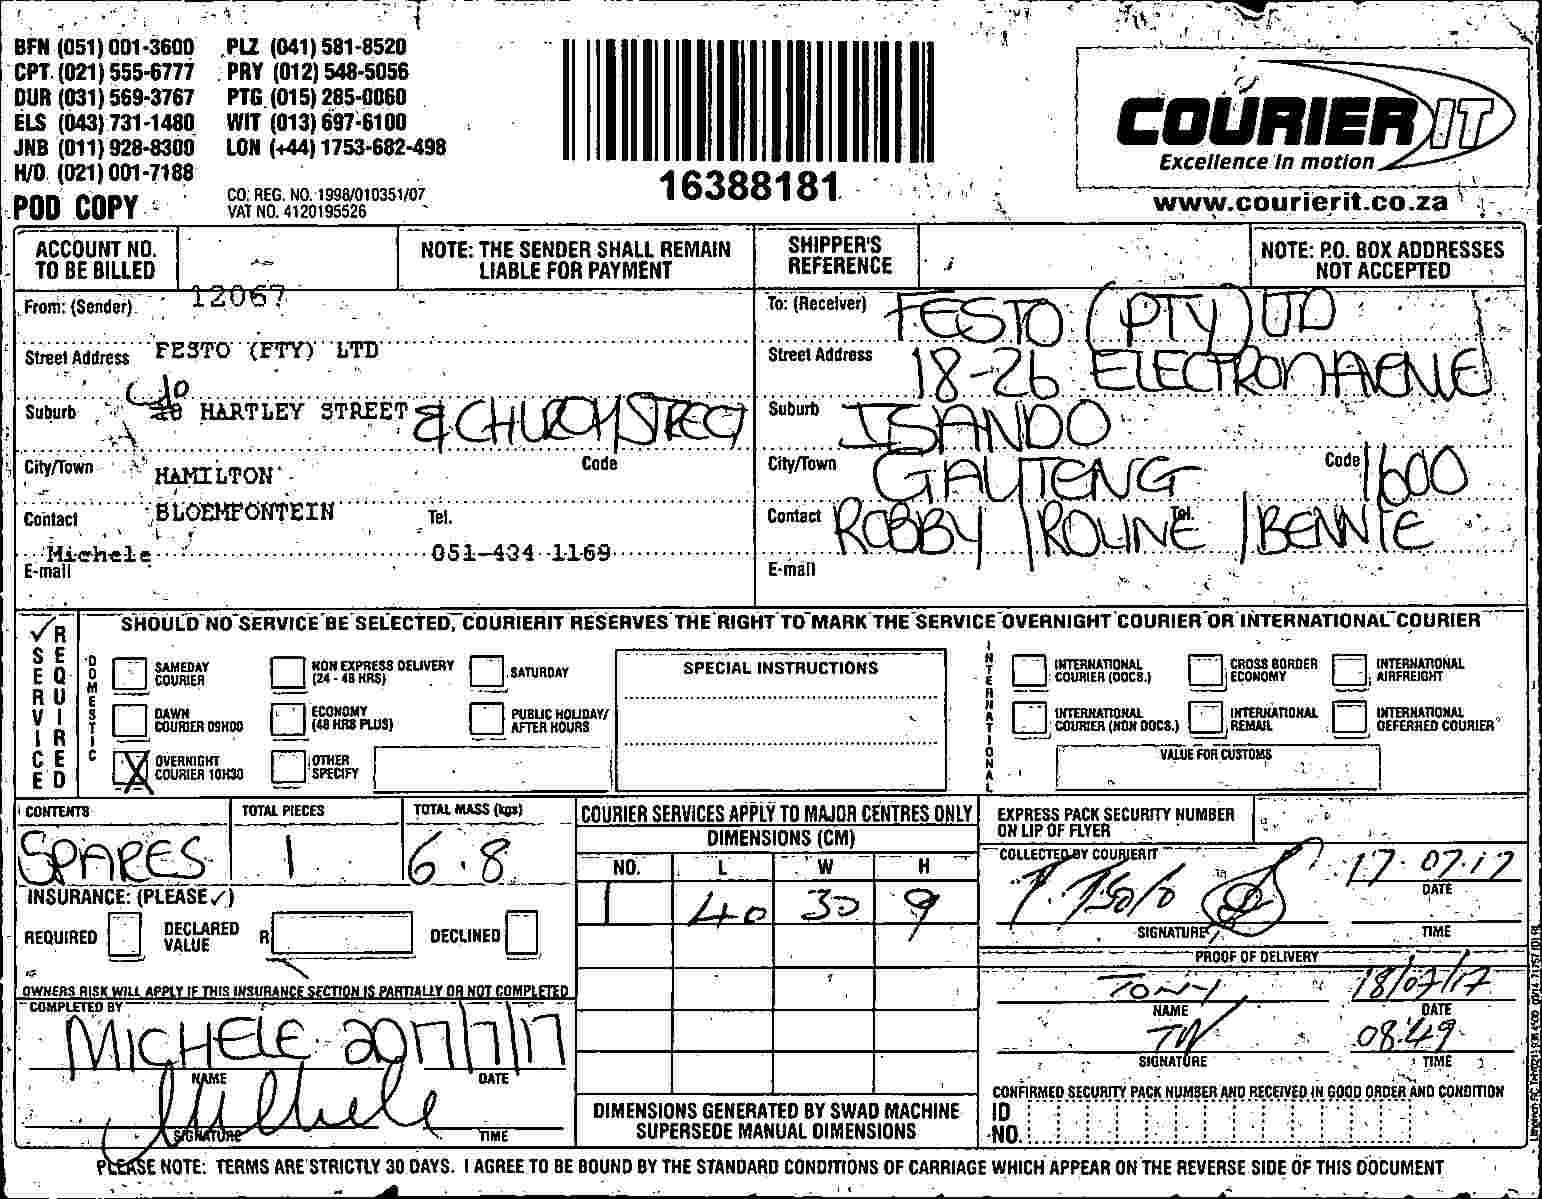 BFN (051) 001-3600 PLZ (041) 581-8520
CPT. (021) 555-6777 PRY (012) 548-5056
DUR (031) 569-3767 PTG (015) 285-0060
ELS (043) 731-1480 WIT (013) 697-6100
JNB (011) 928-8300 LON (+44) 1753-682-498
H/O (021) 001-7188
POD COPY
CO. REG. NO. 1998/010351/07
VAT NO. 4120195526
16388181
COURIER IT
Excellence in motion
www.courierit.co.za
ACCOUNT NO.
TO BE BILLED
NOTE: THE SENDER SHALL REMAIN
LIABLE FOR PAYMENT
SHIPPER'S
REFERENCE
NOTE: P.O. BOX ADDRESSES
NOT ACCEPTED
From: (Sender) 12067
Street Address FESTO (PTY) LTD
Suburb c/o HARTLEY STREET & CHURCH STREET
City/Town HAMILTON Code
Contact BLOEMFONTEIN Tel.
Michele 051-434 1169
E-mail
To: (Receiver) FESTO (PTY) LTD
Street Address 18-26 ELECTRON AVENUE
Suburb ISANDO
City/Town GAUTENG Code 1600
Contact ROBBY / ROLINE Tel. / BENNIE
E-mail
✓ SERVICE REQUIRED
SHOULD NO SERVICE BE SELECTED, COURIERIT RESERVES THE RIGHT TO MARK THE SERVICE OVERNIGHT COURIER OR INTERNATIONAL COURIER
DOMESTIC
SAMEDAY
COURIER
NON EXPRESS DELIVERY
(24 - 48 HRS)
SATURDAY
DAWN
COURIER 09H00
ECONOMY
(48 HRS PLUS)
PUBLIC HOLIDAY/
AFTER HOURS
X OVERNIGHT
COURIER 10H30
OTHER
SPECIFY
SPECIAL INSTRUCTIONS
INTERNATIONAL
INTERNATIONAL
COURIER (DOCS.)
CROSS BORDER
ECONOMY
INTERNATIONAL
AIRFREIGHT
INTERNATIONAL
COURIER (NON DOCS.)
INTERNATIONAL
REMAIL
INTERNATIONAL
DEFERRED COURIER
VALUE FOR CUSTOMS
CONTENTS TOTAL PIECES TOTAL MASS (kgs)
SPARES 1 6.8
INSURANCE: (PLEASE ✓)
REQUIRED DECLARED VALUE R DECLINED
OWNERS RISK WILL APPLY IF THIS INSURANCE SECTION IS PARTIALLY OR NOT COMPLETED
COMPLETED BY
MICHELE 2017/7/17
NAME DATE
Michele
SIGNATURE TIME
COURIER SERVICES APPLY TO MAJOR CENTRES ONLY
DIMENSIONS (CM)
NO. L W H
1 40 30 9
DIMENSIONS GENERATED BY SWAD MACHINE
SUPERSEDE MANUAL DIMENSIONS
EXPRESS PACK SECURITY NUMBER
ON LIP OF FLYER
COLLECTED BY COURIERIT
17.07.17
DATE
SIGNATURE TIME
PROOF OF DELIVERY
TONY 18/07/17
NAME DATE
08:49
SIGNATURE TIME
CONFIRMED SECURITY PACK NUMBER AND RECEIVED IN GOOD ORDER AND CONDITION
ID
NO.
PLEASE NOTE: TERMS ARE STRICTLY 30 DAYS. I AGREE TO BE BOUND BY THE STANDARD CONDITIONS OF CARRIAGE WHICH APPEAR ON THE REVERSE SIDE OF THIS DOCUMENT